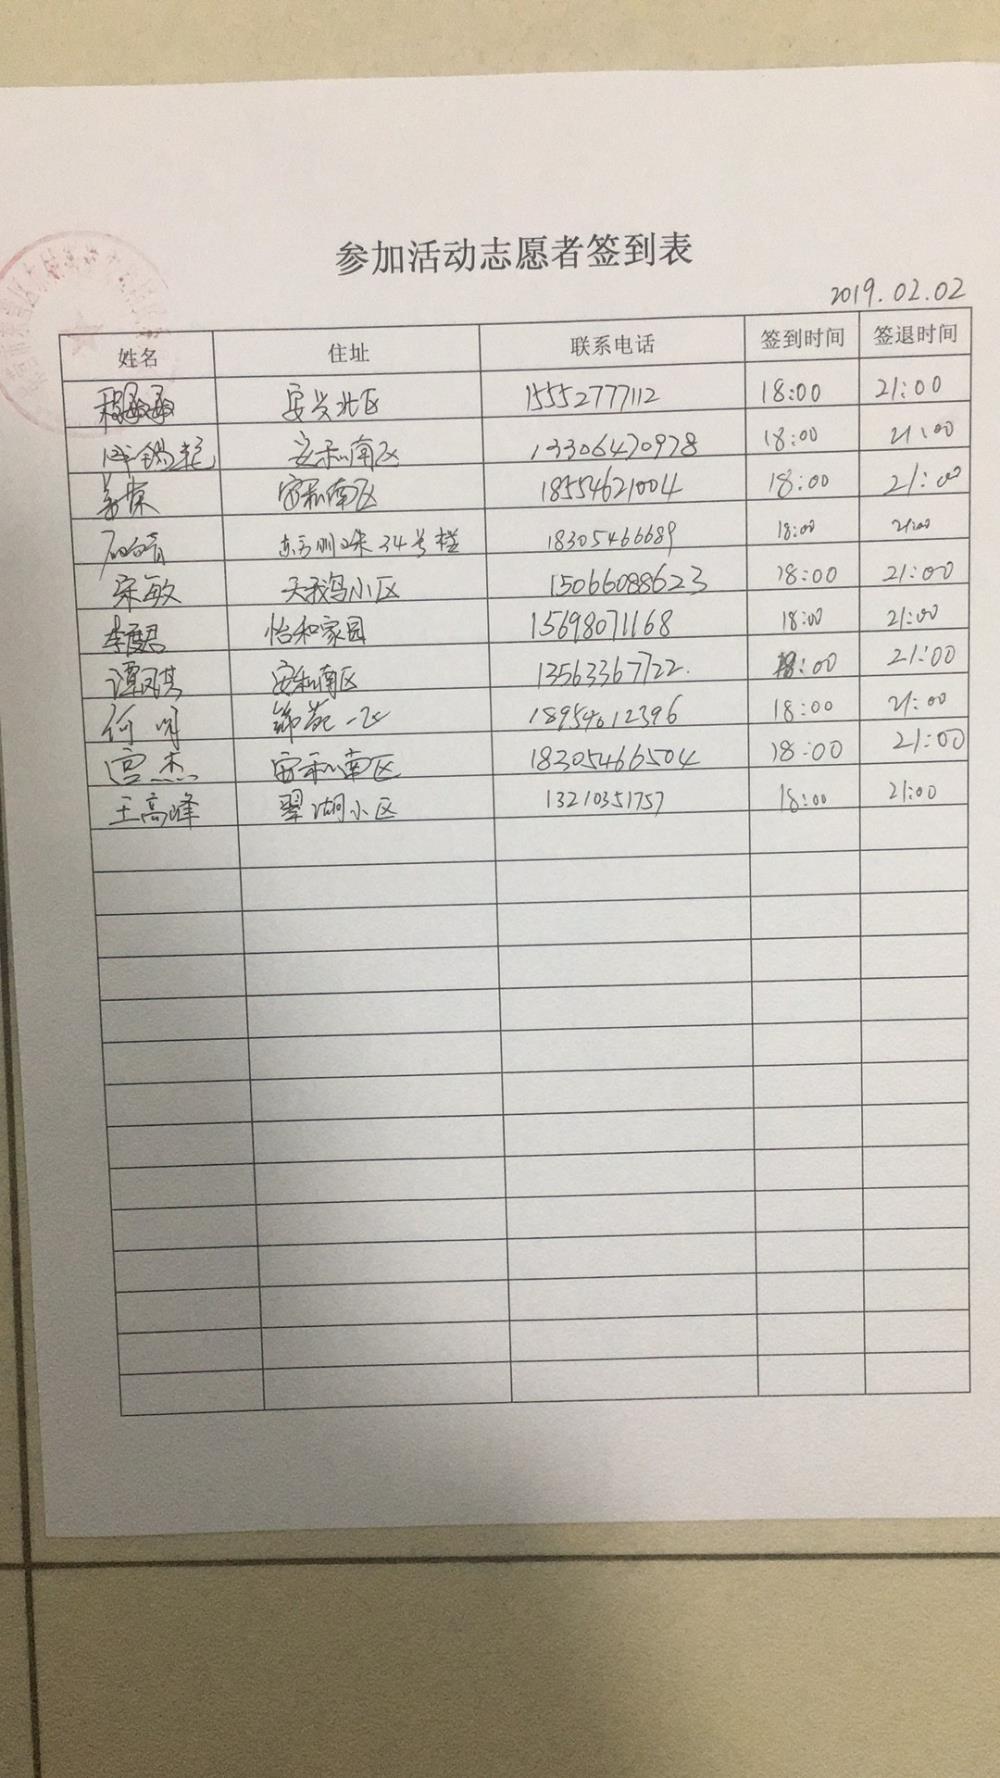 参加活动志愿者签到表
2019.02.02
姓名 住址 联系电话 签到时间 签退时间
程敏敏 安兴北区 15552777112 18:00 21:00
安和南区 13306470978 18:00 21:00
姜荣 安和南区 18554621004 18:00 21:00
东方明珠34号楼 18305466689 18:00 21:00
宋敏 天鹅湾小区 15066088623 18:00 21:00
李君 怡和家园 15698071168 18:00 21:00
谭凤琪 安和南区 13563367722 18:00 21:00
何明 锦苑一区 18954612396 18:00 21:00
宫杰 安和南区 18305466504 18:00 21:00
王高峰 翠湖小区 13210351757 18:00 21:00